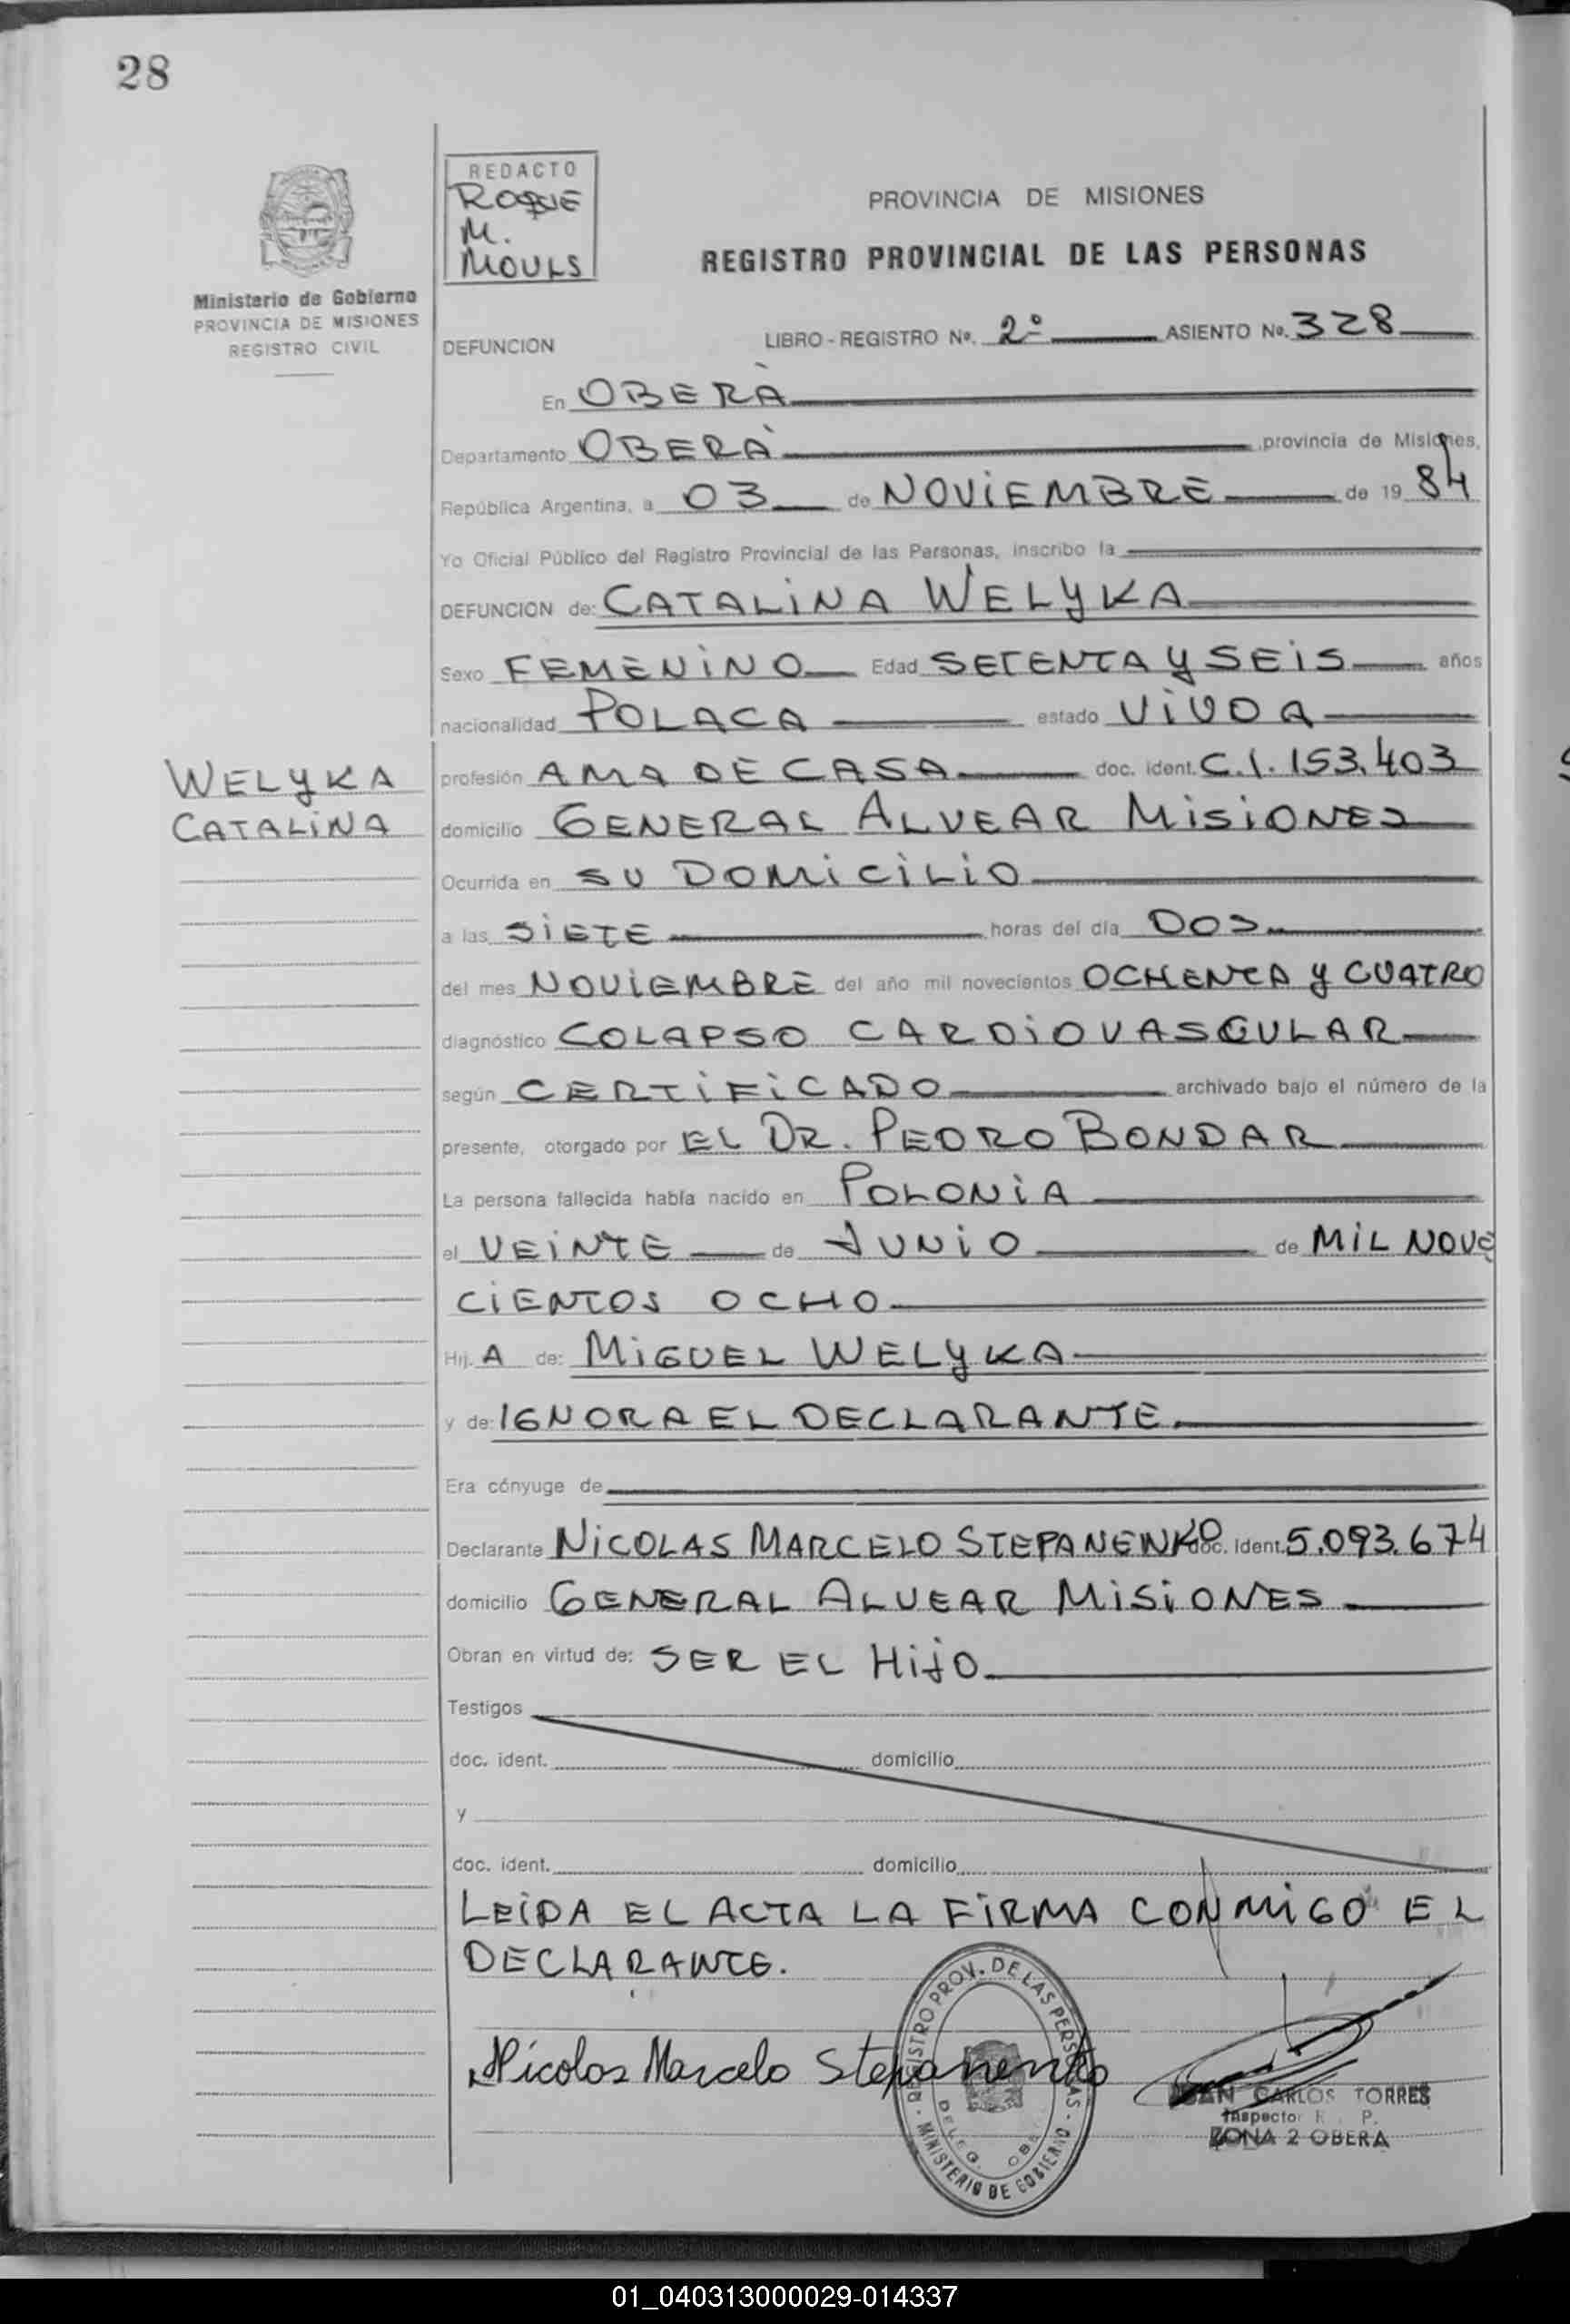 28
REDACTO
ROQUE
M.
MOULS
PROVINCIA DE MISIONES
REGISTRO PROVINCIAL DE LAS PERSONAS
Ministerio de Gobierno
PROVINCIA DE MISIONES
REGISTRO CIVIL
DEFUNCION LIBRO - REGISTRO Nº. 2º ASIENTO Nº. 328
En OBERÀ
Departamento OBERÀ provincia de Misiones,
República Argentina, a 03 de NOVIEMBRE de 19 84
Yo Oficial Público del Registro Provincial de las Personas, inscribo la
DEFUNCION de: CATALINA WELYKA
Sexo FEMENINO Edad SETENTA Y SEIS años
nacionalidad POLACA estado VIUDA
WELYKA
CATALINA
profesión AMA DE CASA doc. ident. C.I. 153.403
domicilio GENERAL ALVEAR MISIONES
Ocurrida en SU DOMICILIO
a las SIETE horas del día DOS
del mes NOVIEMBRE del año mil novecientos OCHENTA Y CUATRO
diagnóstico COLAPSO CARDIOVASCULAR
según CERTIFICADO archivado bajo el número de la
presente, otorgado por EL DR. PEDRO BONDAR
La persona fallecida había nacido en POLONIA
el VEINTE de JUNIO de MIL NOVE
CIENTOS OCHO
Hij. A de: MIGUEL WELYKA
y de: IGNORA EL DECLARANTE.
Era cónyuge de
Declarante NICOLAS MARCELO STEPANENKO doc. ident. 5.093.674
domicilio GENERAL ALVEAR MISIONES
Obran en virtud de: SER EL HIJO
Testigos
doc. ident. domicilio
y
doc. ident. domicilio
LEIDA EL ACTA LA FIRMA CONMIGO EL
DECLARANTE.
Nicolas Marcelo Stepanenko
REGISTRO PROV. DE LAS PERSONAS
MINISTERIO DE GOBIERNO
DELEG.
JUAN CARLOS TORRES
Inspector R. P.
ZONA 2 OBERA
01_040313000029-014337